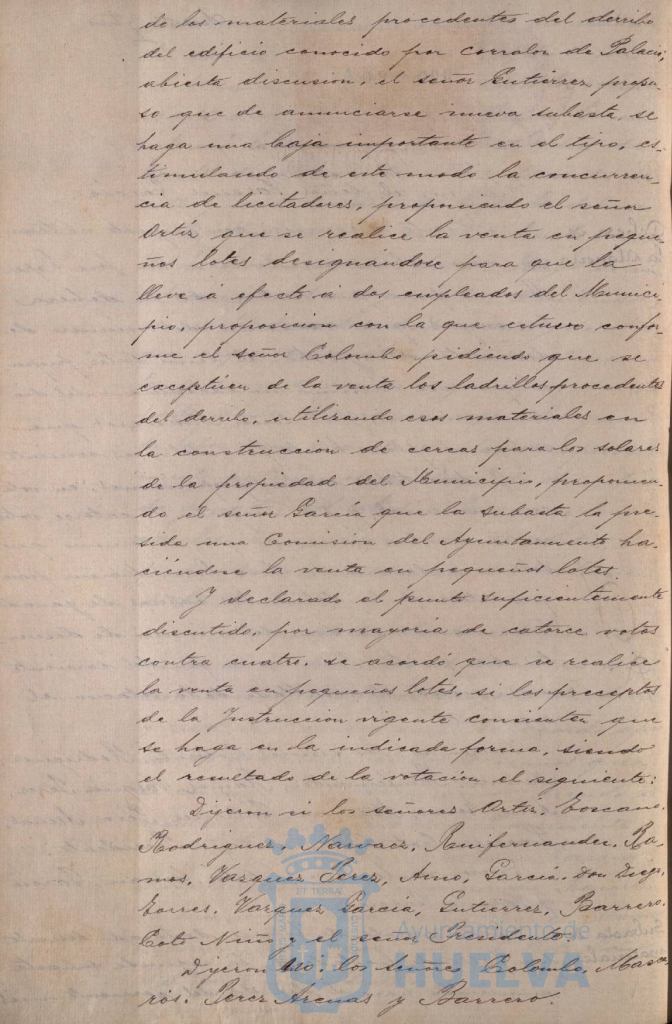 de los materiales procedentes del derribo
del edificio conocido por corralon de Palacio;
abierta discusion, el señor Gutiérrez propu-
so que de anunciarse nueva subasta, se
haga una baja importante en el tipo, es-
timulando de este modo la concurren-
cia de licitadores, proponiendo el señor
Ortíz que se realice la venta en peque-
ños lotes designándose para que la
lleve á efecto á dos empleados del Munici-
pio, proposicion con la que estuvo confor-
me el señor Colombo pidiendo que se
exceptúen de la venta los ladrillos procedentes
del derribo, utilizando esos materiales en
la construccion de cercas para los solares
de la propiedad del Municipio, proponien-
do el señor García que la subasta la pre-
sida una Comision del Ayuntamiento ha-
ciéndose la venta en pequeños lotes.
Y declarado el punto suficientemente
discutido, por mayoría de catorce votos
contra cuatro, se acordó que se realice
la venta en pequeños lotes, si los preceptos
de la Instruccion vigente consienten que
se haga en la indicada forma, siendo
el resultado de la votacion el siguiente:
Dijeron si los señores Ortíz, Toscano,
Rodriguez, Narvaez, Ruifernandez, Ra-
mos, Vazquez Perez, Amo, García Don Diego,
Torres, Vazquez García, Gutierrez, Barrero,
Coto Niño y el señor Presidente.
Dijeron no, los señores Colombo, Masca-
rós, Perez Arenas y Barrero.
Ayuntamiento de
HUELVA